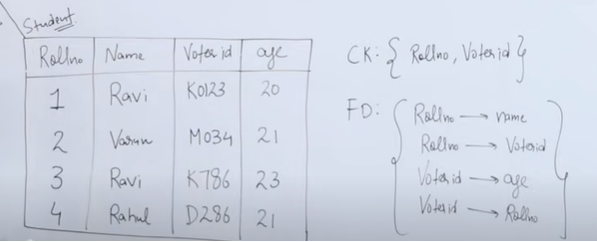 Student
Rollno Name Voterid age
1 Ravi K0123 20
2 Varun M034 21
3 Ravi K786 23
4 Rahul D286 21
CK: { Rollno, Voterid }
FD: { Rollno → name
Rollno → Voterid
Voterid → age
Voterid → Rollno }